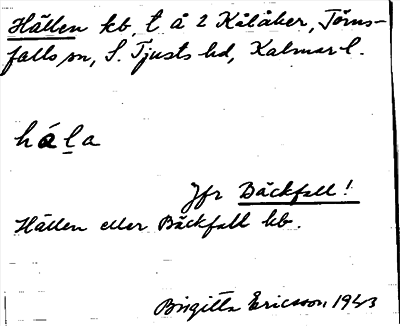 Hällen kb, t å 2 Kålåker, Törns-
falls sn, S. Tjusts hd, Kalmar l.
hála
Jfr Bäckfall!
Hällen eller Bäckfall kb.
Birgitta Ericsson 1943